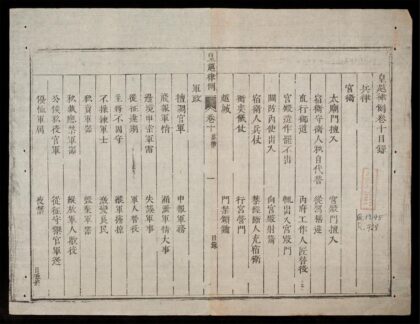 皇越律例卷十目錄
兵律
宮衛
太廟門擅入 宮殿門擅入
宿衛守衛人私自代替 從駕稽違
直行御道 內府工作人匠替役
宮殿造作罷不出 輒出入宮殿門
關防內使出入 向宮殿射箭
宿衛人兵仗 禁經斷人充宿衛
衝突儀仗 行宮營門
越城 門禁鎖鑰
皇越律例 卷十 兵律 一 目錄
軍政
擅調官軍 申報軍務
飛報軍情 漏泄軍情大事
邊境申索軍需 失誤軍事
從征違期 軍人替役
主將不固守 縱軍擄掠
不操練軍士 激變良民
私賣軍器 毀棄軍器
私藏應禁軍器 縱放軍人歇役
公侯私役官軍 從征守禦官軍逃
優恤軍屬 夜禁